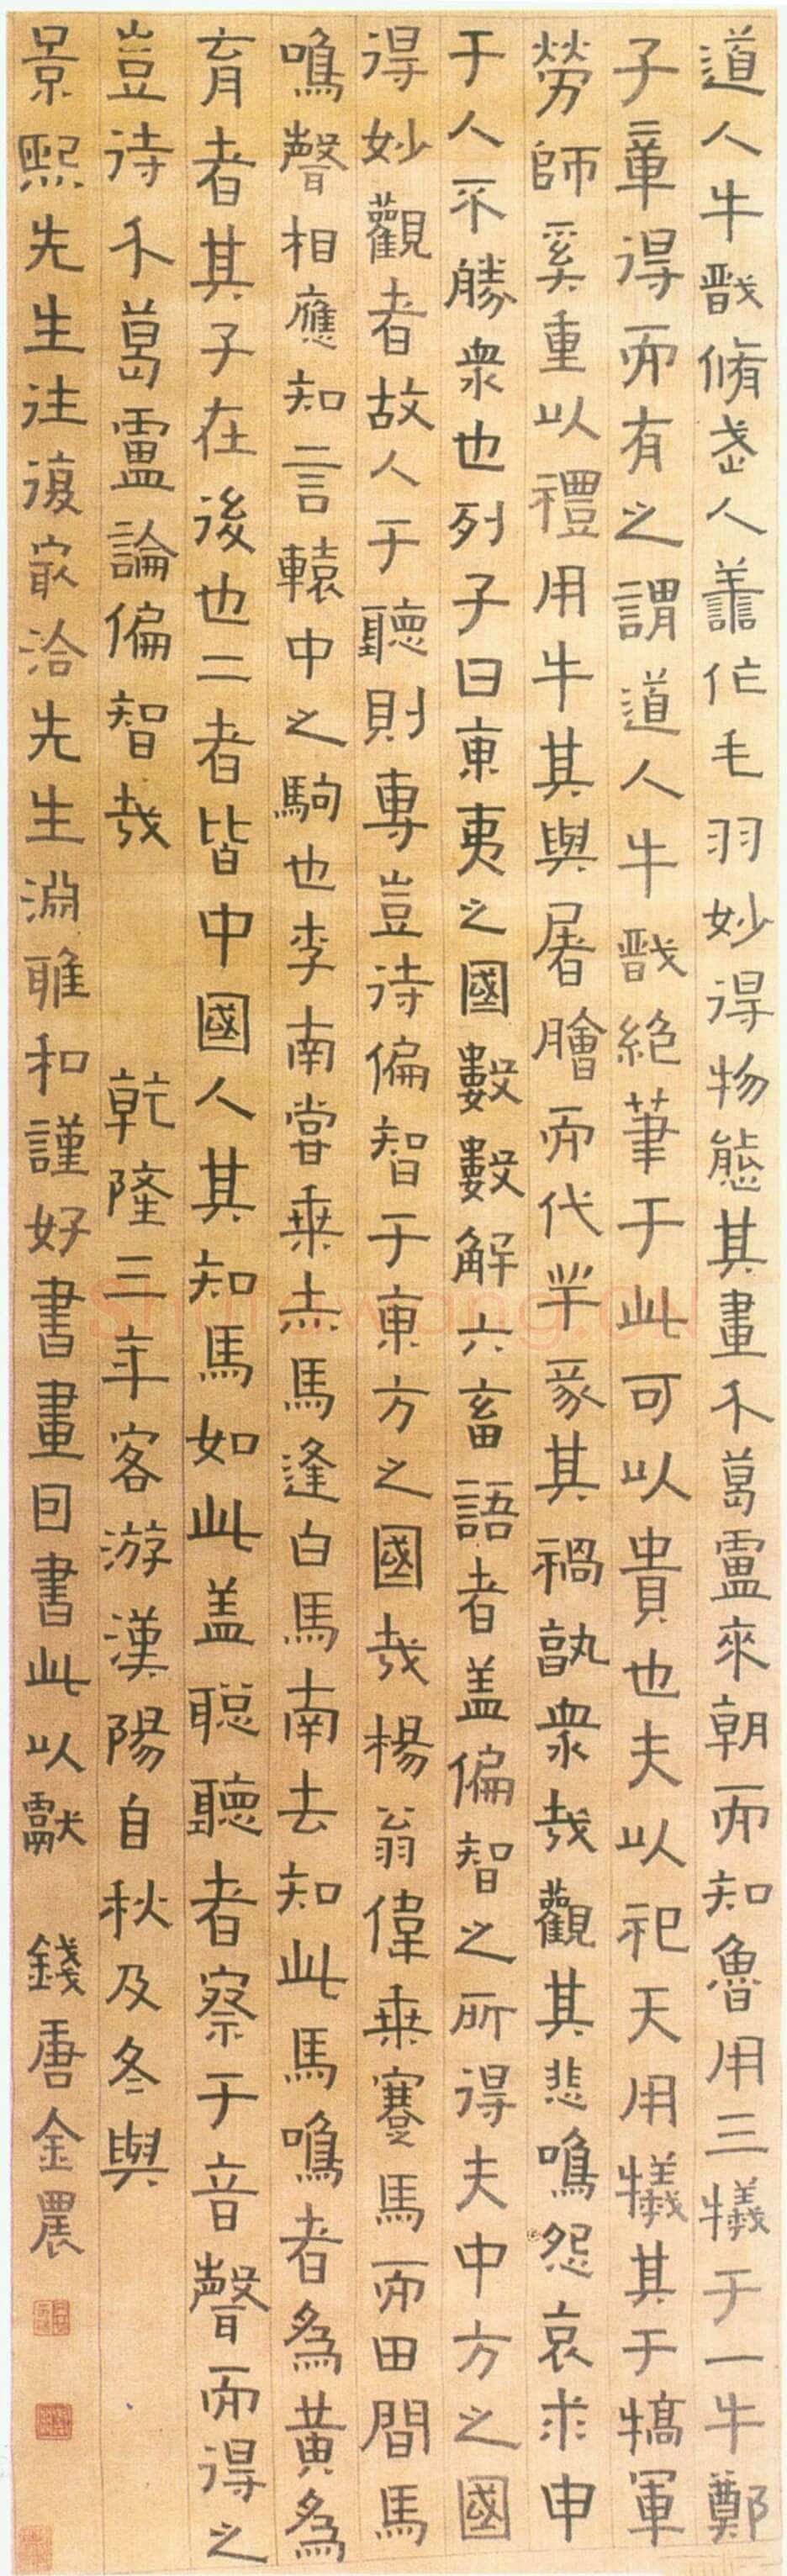 道人牛戩脩武人善作毛羽妙得物態其畫介葛盧來朝而知魯用三犧于一牛鄭
子章得而有之謂道人牛戩絕筆于此可以貴也夫以祀天用犧其于犒軍
勞師奚重以禮用牛其與屠膾而代羊豕其禍孰衆哉觀其悲鳴怨哀求申
于人不勝衆也列子曰東夷之國數數解六畜語者盖偏智之所得夫中方之國
得妙觀者故人于聽則專豈待偏智于東方之國哉楊翁偉乘蹇馬而田間馬
鳴聲相應知言轅中之駒也李南嘗乘赤馬逢白馬南去知此馬鳴者為黃為
育者其子在後也二者皆中國人其知馬如此盖聪聽者察于音聲而得之
豈待介葛盧論偏智哉 乾隆三年客游漢陽自秋及冬與
景熙先生往復冣洽先生淵雅和謹好書畫回書此以獻 錢唐金農